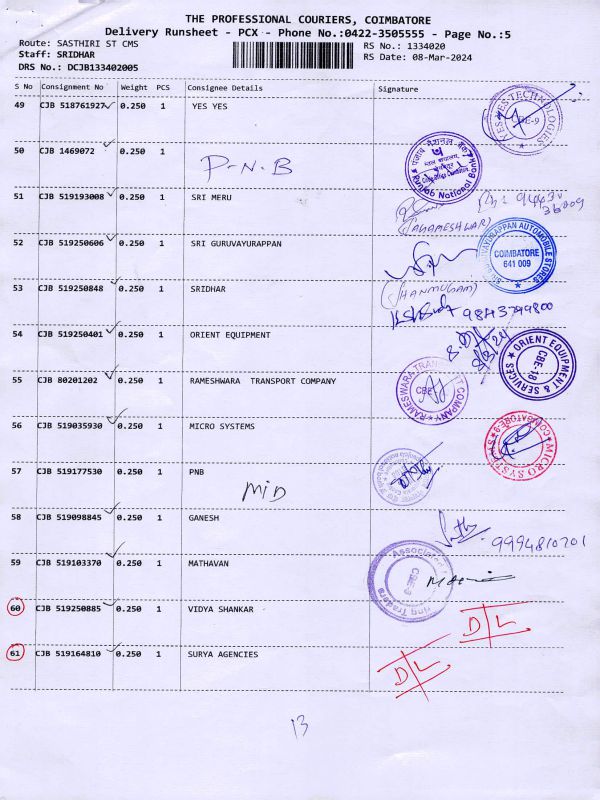 THE PROFESSIONAL COURIERS, COIMBATORE
Delivery Runsheet - PCX - Phone No.:0422-3505555 - Page No.:5
Route: SASTHIRI ST CMS
RS No.: 1334020
Staff: SRIDHAR
RS Date: 08-Mar-2024
DRS No.: DCJB133402005
S No Consignment No Weight PCS Consignee Details Signature
49 CJB 518761927 0.250 1 YES YES
YES YES TECHNOLOGIES
CBE-9
50 CJB 1469072 0.250 1
P-N.B
Punjab National Bank
51 CJB 519193008 0.250 1 SRI MERU
52 CJB 519250606 0.250 1 SRI GURUVAYURAPPAN
SRI GURUVAYURAPPAN AUTOMOBILE STORES
COIMBATORE
641 009
53 CJB 519250848 0.250 1 SRIDHAR
(SHANMUGAM)
54 CJB 519250401 0.250 1 ORIENT EQUIPMENT
ORIENT EQUIPMENT & SERVICES
CBE-18
55 CJB 80201202 0.250 1 RAMESHWARA TRANSPORT COMPANY
RAMESWARA TRANSPORT COMPANY
CBE
56 CJB 519035930 0.250 1 MICRO SYSTEMS
MICRO SYSTEMS
COIMBATORE-9
57 CJB 519177530 0.250 1 PNB
MID
58 CJB 519098845 0.250 1 GANESH
9994810201
59 CJB 519103370 0.250 1 MATHAVAN
Associated
Traders
CBE-9
60 CJB 519250885 0.250 1 VIDYA SHANKAR
D/L
61 CJB 519164810 0.250 1 SURYA AGENCIES
D/L
13